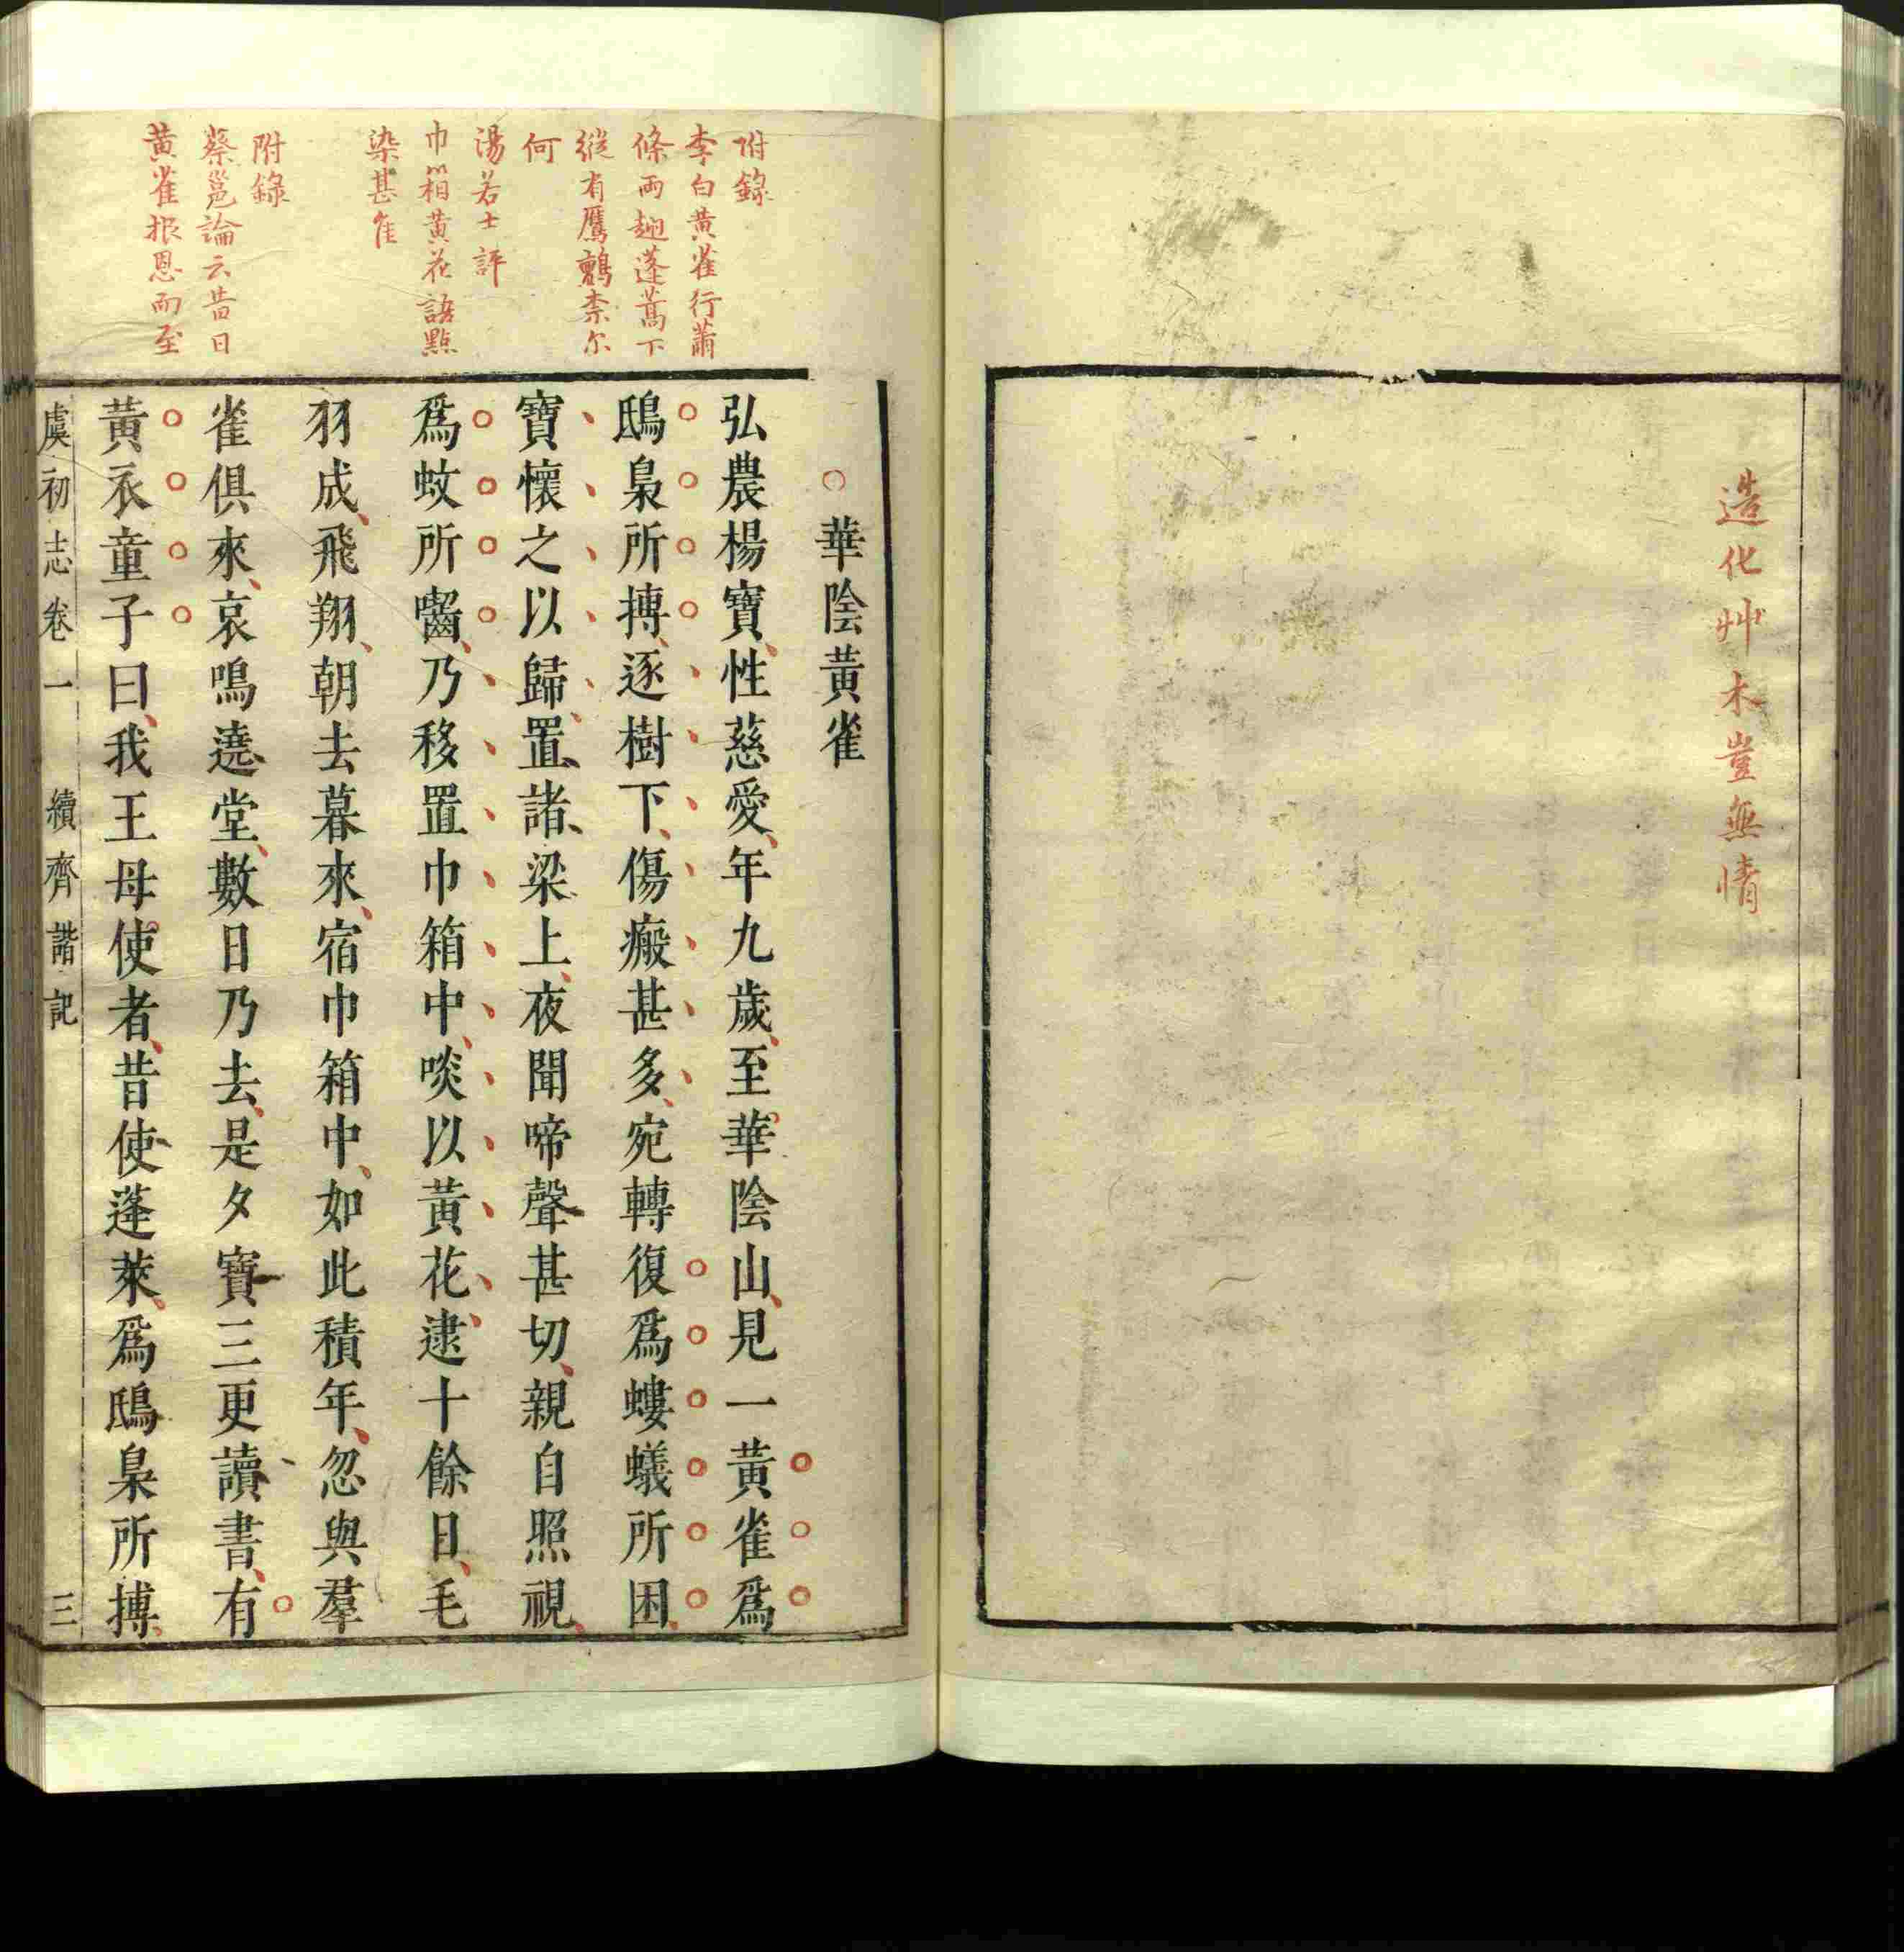 造化艸木豈無情
附錄
李白黃雀行蕭
條兩翅蓬蒿下
縱有鷹鸇柰尔
何
湯若士評
巾箱黃花語點
染甚隹
附錄
蔡邕論云昔日
黃雀报恩而至
華陰黃雀
弘農楊寶、性慈愛、年九歲、至華陰山、見一黃雀爲
鴟梟所搏、逐樹下、傷瘢甚多、宛轉復爲螻蟻所困、
寶懷之以歸、置諸梁上、夜聞啼聲甚切、親自照視、
爲蚊所嚙、乃移置巾箱中、啖以黃花、逮十餘日、毛
羽成、飛翔、朝去暮來、宿巾箱中、如此積年、忽與羣
雀俱來、哀鳴遶堂、數日乃去、是夕寶三更讀書、有
黃衣童子曰、我王母使者、昔使蓬萊、爲鴟梟所搏、
虞初志卷一 續齊諧記 三